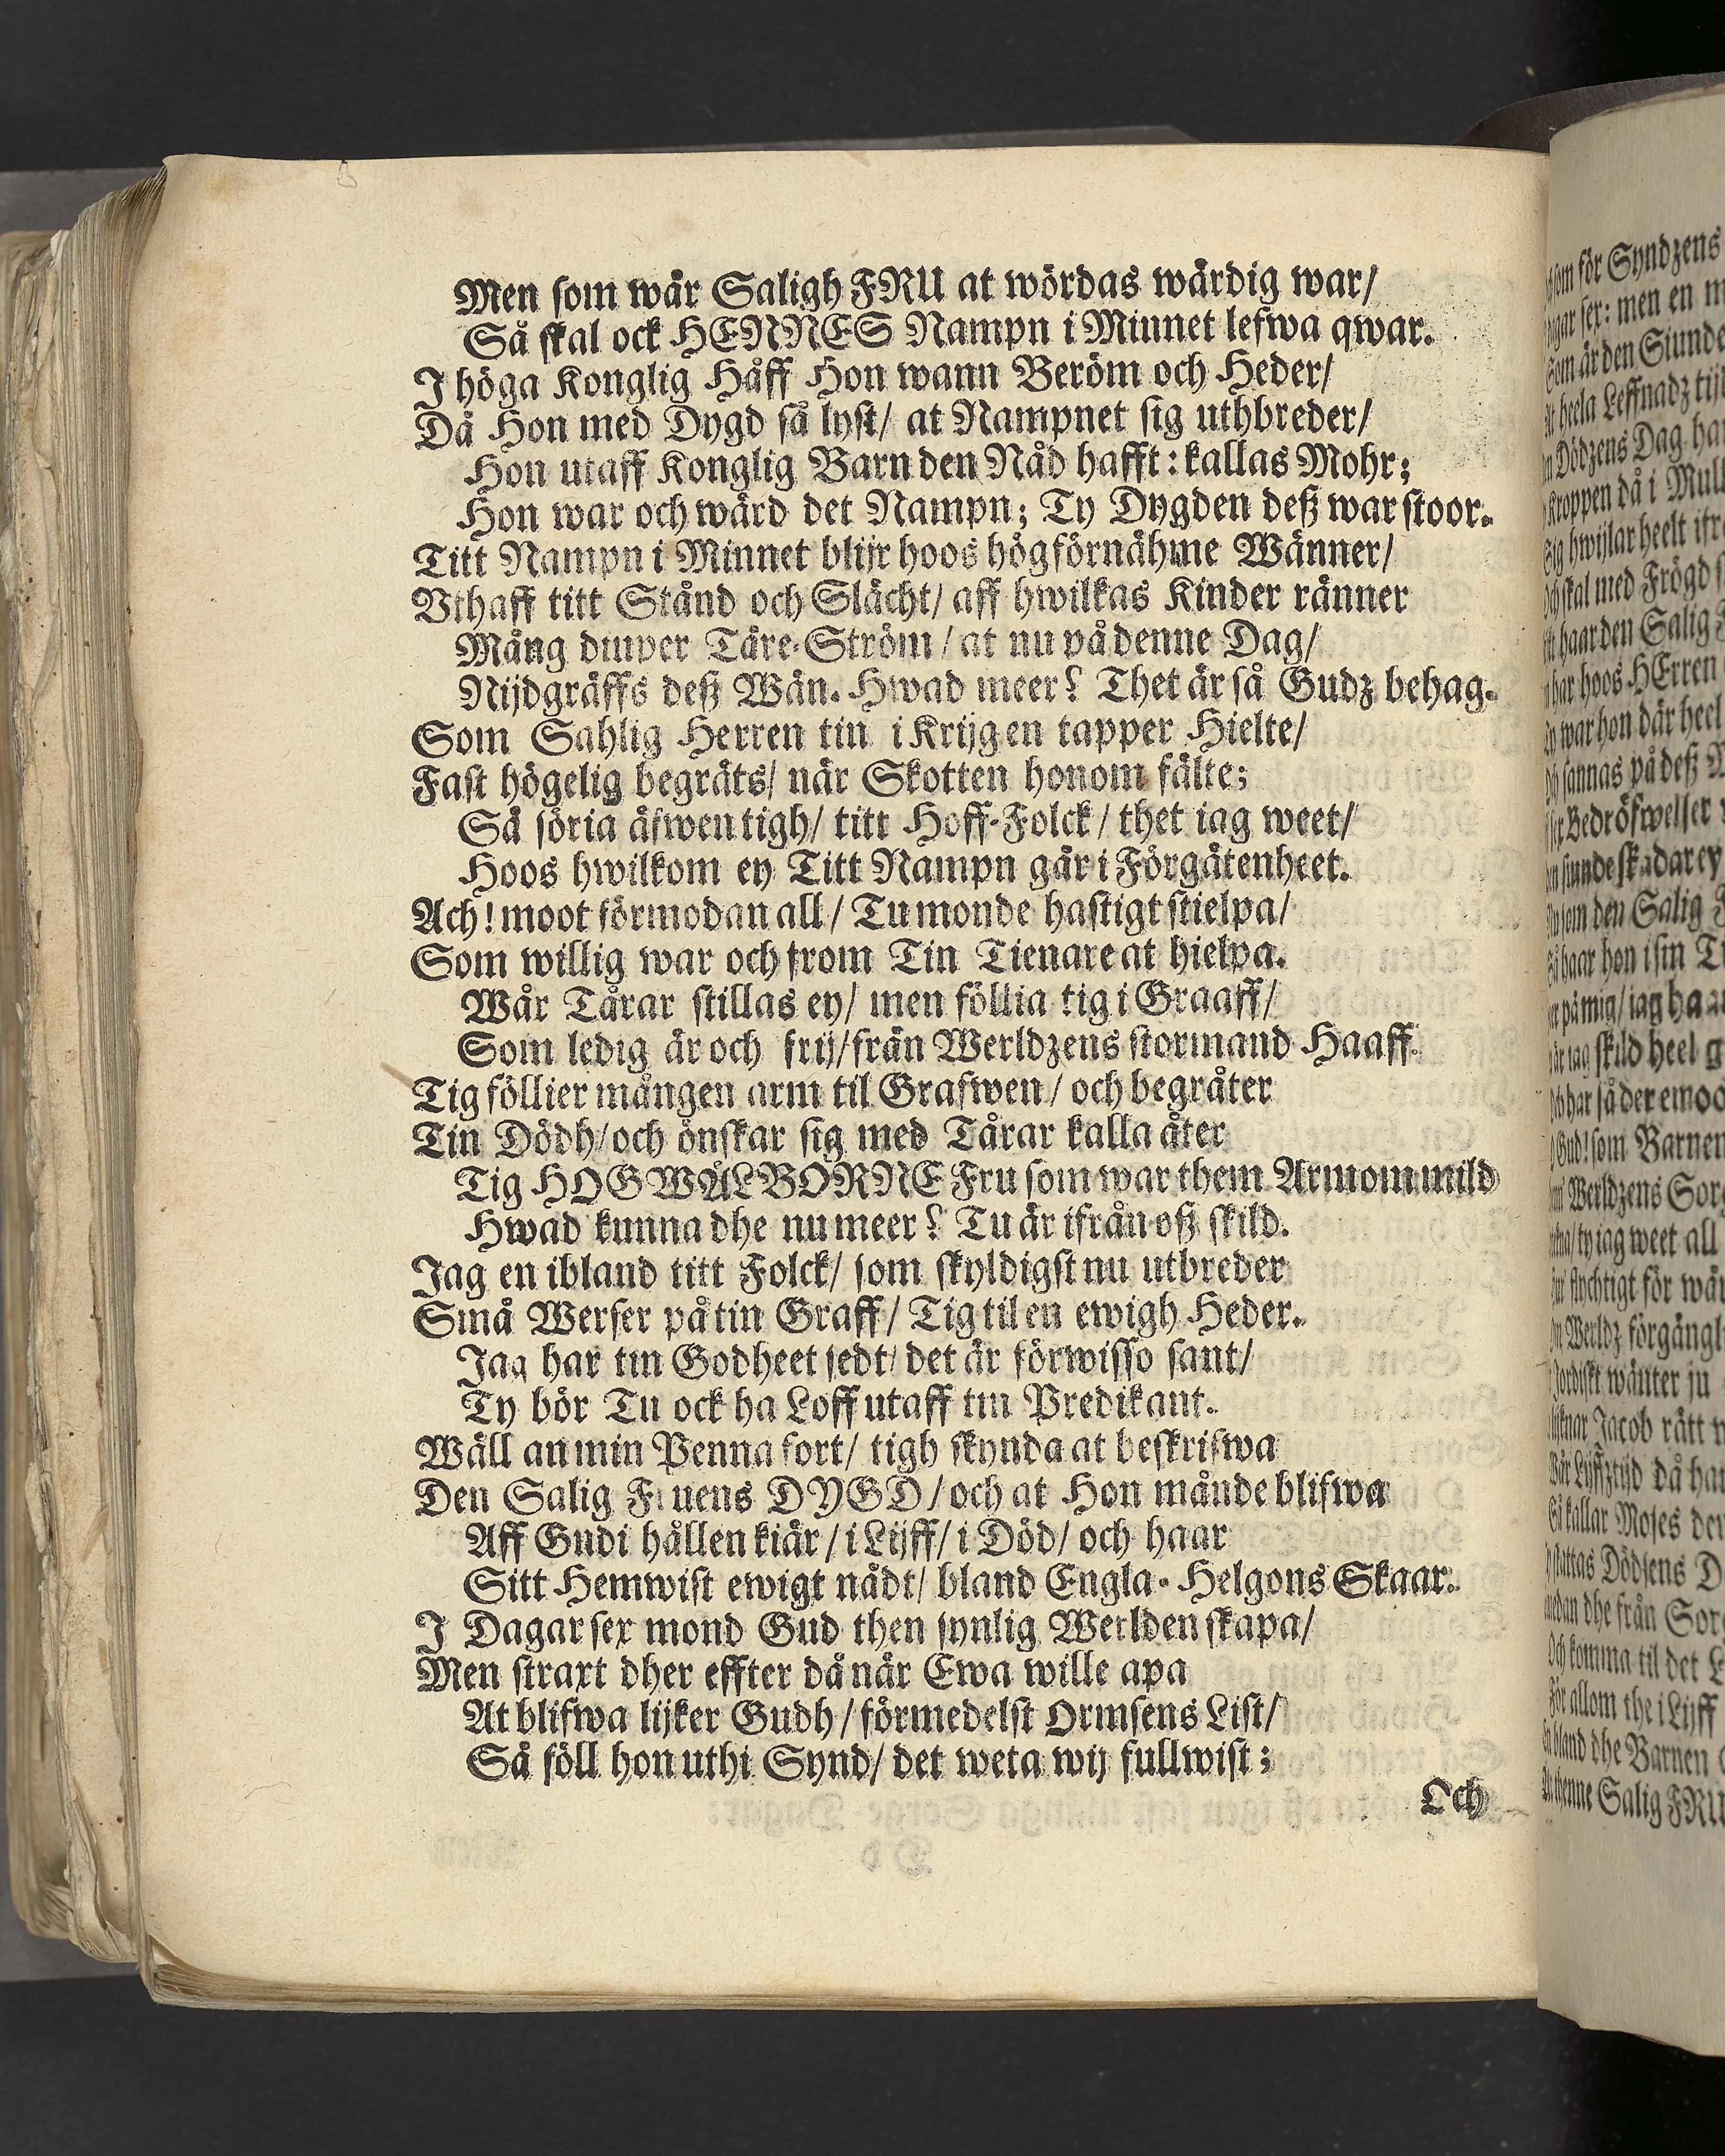 Men som wår Saligh FRU at wördas wärdig war/
Så skal ock HENNES Nampn i Minnet lefwa qwar.
J höga Konglig Håff Hon wann Beröm och Heder/
Då Hon med Dygd så lyst/ at Nampnet sig uthbreder/
Hon utaff Konglig Barn den Nåd hafft: kallas Mohr;
Hon war och wärd det Nampn; Ty Dygden deß war stoor.
Titt Nampn i Minnet blijr hoos högförnähme Wänner/
Vthaff titt Stånd och Slächt/ aff hwilkas Kinder ränner
Mång diuper Tåre-Ström/ at nu på denne Dag/
Nijdgräffs deß Wän. Hwad meer? Thet är så Gudz behag.
Som Sahlig Herren tin i Krijgen tapper Hielte/
Fast högelig begräts/ når Skotten honom fälte;
Så söria äfwen tigh/ titt Hoff-Folck/ thet iag weet/
Hoos hwilkom ey Titt Nampn går i Förgätenheet.
Ach! moot förmodan all/ Tu monde hastigt stielpa/
Som willig war och from Tin Tienare at hielpa.
Wår Tårar stillas ey/ men föllia tig i Graaff/
Som ledig är och frij/ från Werldzens stormand Haaff.
Tig föllier mången arm til Grafwen/ och begråter
Tin Dödh/ och önskar sig med Tårar kalla åter
Tig HÖGWÄLBORNE Fru som war them Armom mild
Hwad kunna dhe nu meer? Tu är ifrån oß skild.
Jag en ibland titt Folck/ som skyldigst nu utbreder
Små Werser på tin Graff/ Tig til en ewigh Heder.
Jag har tin Godheet sedt/ det är förwisso sant/
Ty bör Tu ock ha Loff utaff tin Predikant.
Wäll an min Penna fort/ tigh skynda at beskrifwa
Den Salig Fruens DYGD/ och at Hon månde blifwa
Aff Gudi hållen kiär/ i Lijff/ i Död/ och haar
Sitt Hemwist ewigt nådt/ bland Engla-Helgons Skaar.
J Dagar sex mond Gud then synlig Werlden skapa/
Men straxt dher effter då när Ewa wille apa
At blifwa lijker Gudh/ förmedelst Ormsens List/
Så föll hon uthi Synd/ det weta wij fullwist;
Och